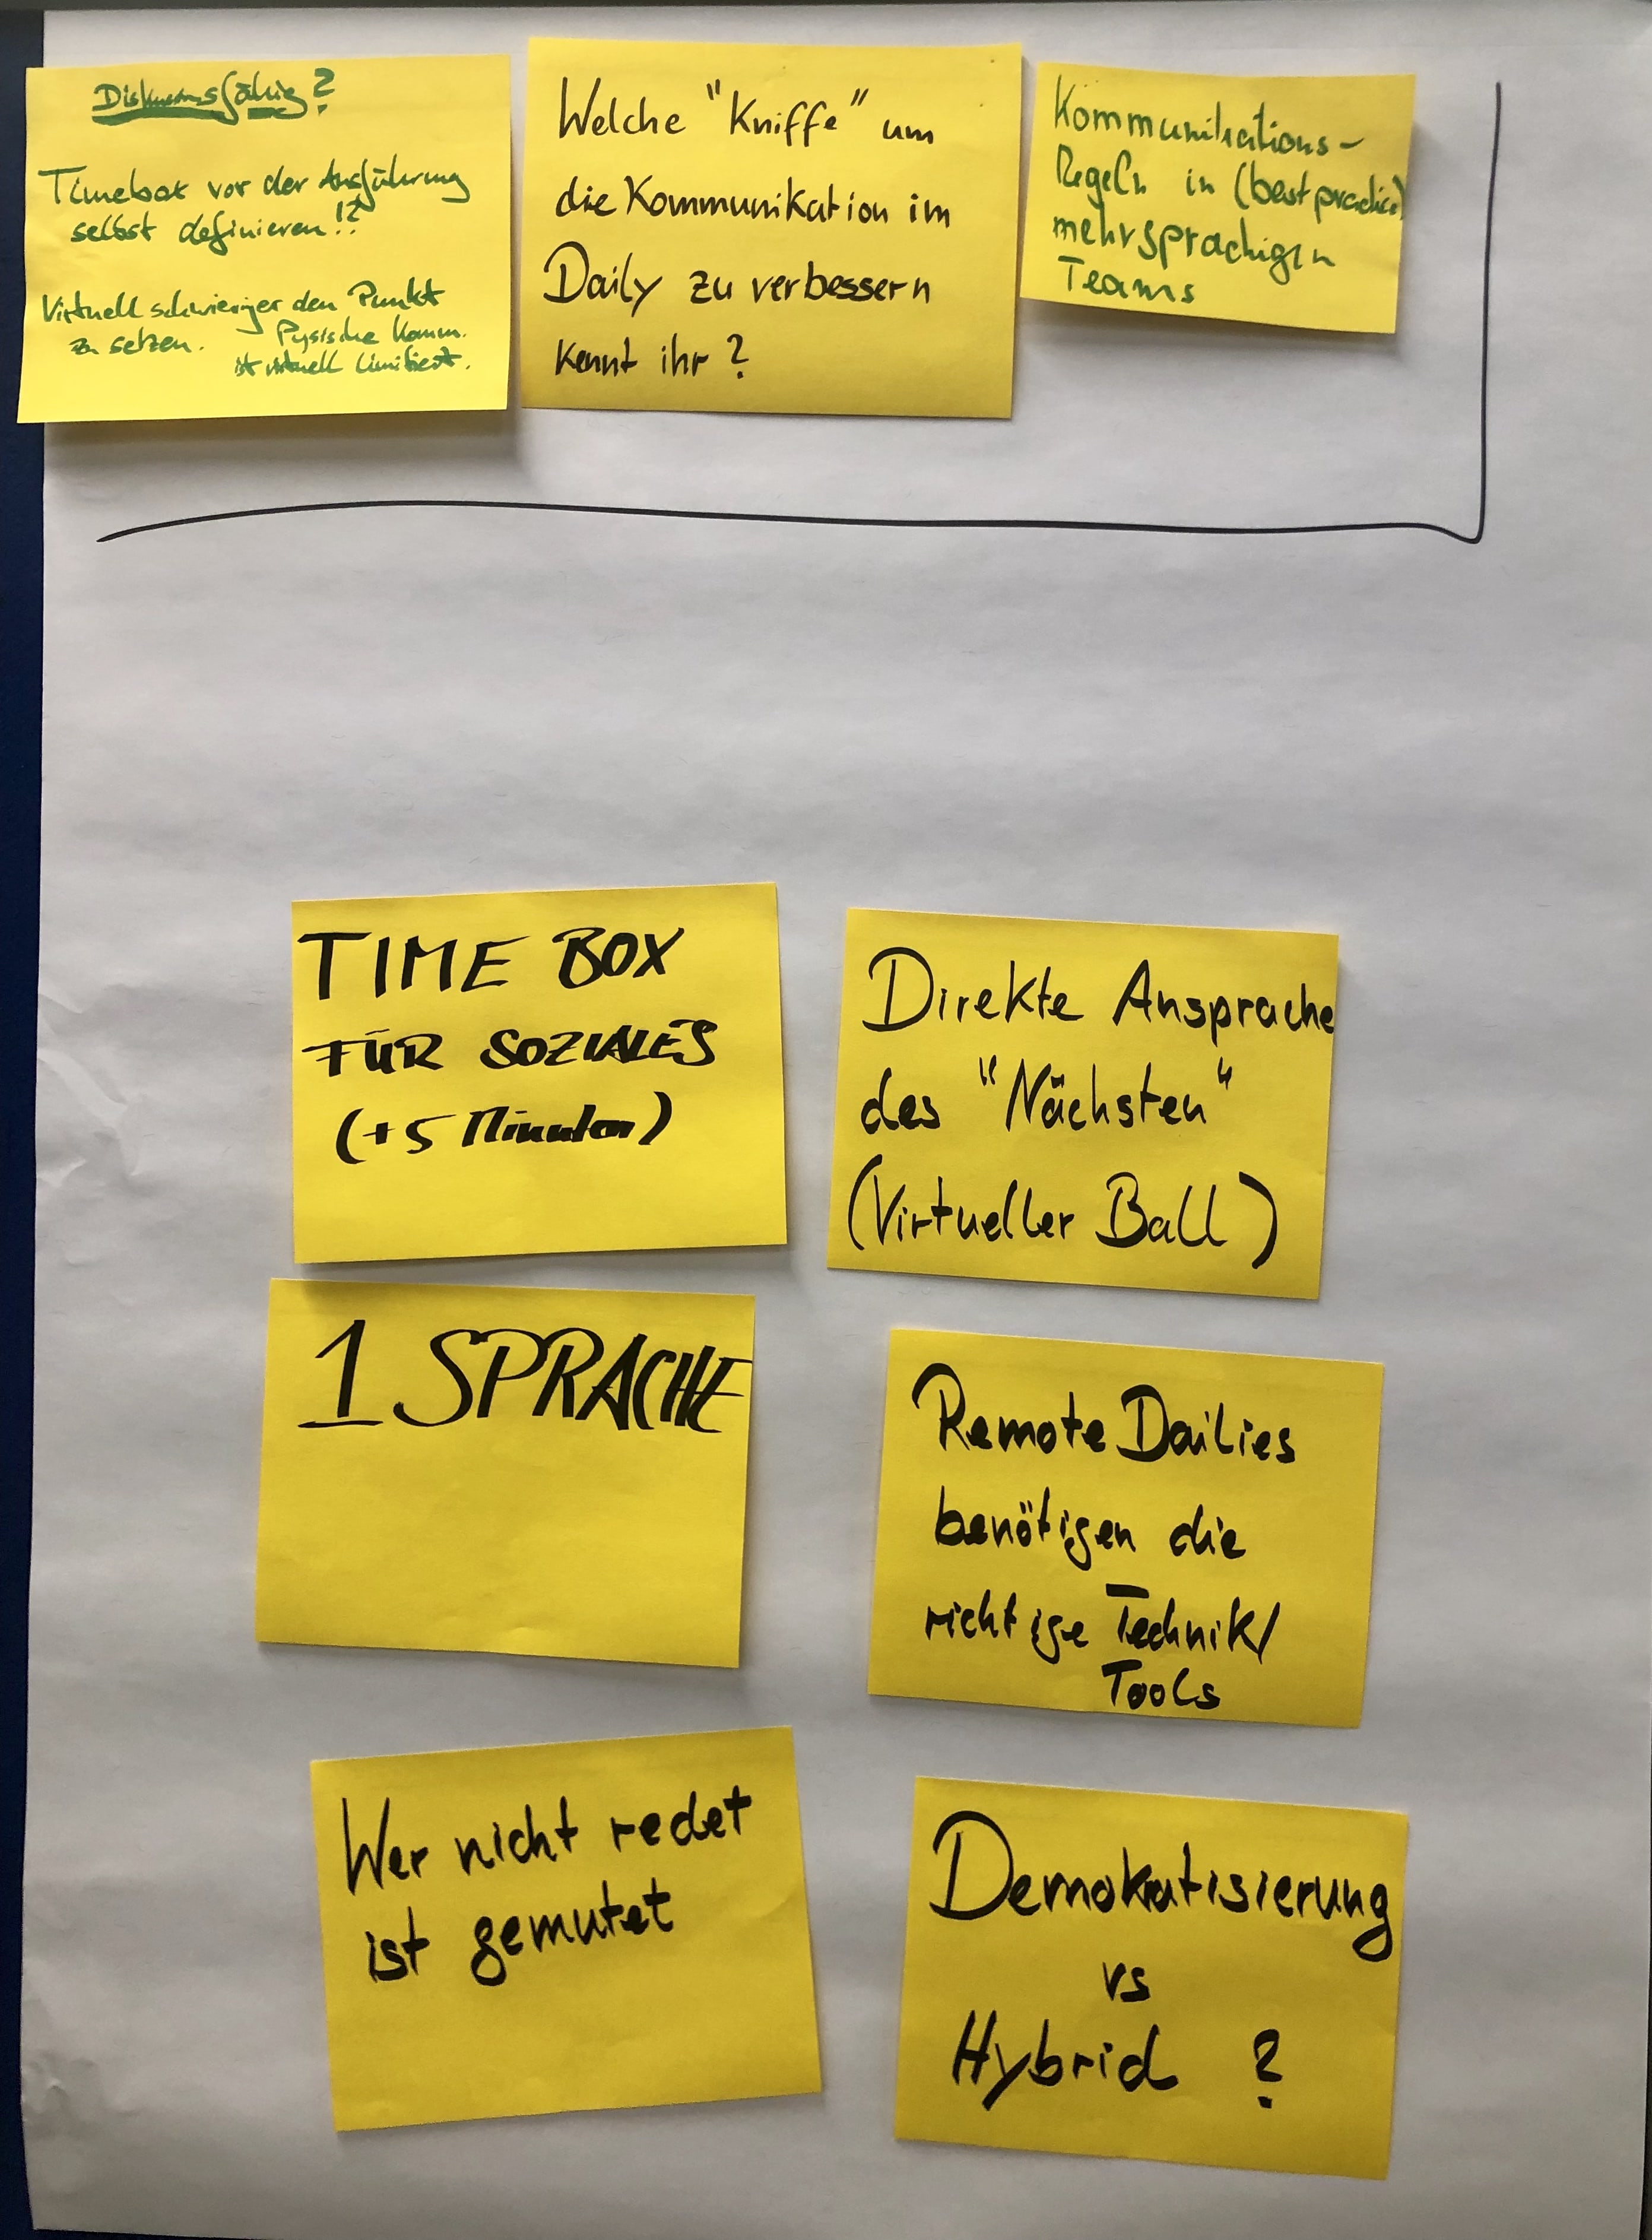 Diskussionsfähig?
Timebox vor der Ausführung
selbst definieren!?
Virtuell schwieriger den Punkt
zu setzen. Pysische Komm.
ist virtuell limitiert.
Welche "Kniffe" um
die Kommunikation im
Daily zu verbessern
kennt ihr?
Kommunikations-
Regeln in (best practice)
mehrsprachigen
Teams
TIME BOX
FÜR SOZIALES
(+5 Minuten)
Direkte Ansprache
des "Nächsten"
(Virtueller Ball)
1 SPRACHE
Remote Dailies
benötigen die
richtige Technik/
Tools
Wer nicht redet
ist gemutet
Demokratisierung
vs
Hybrid ?